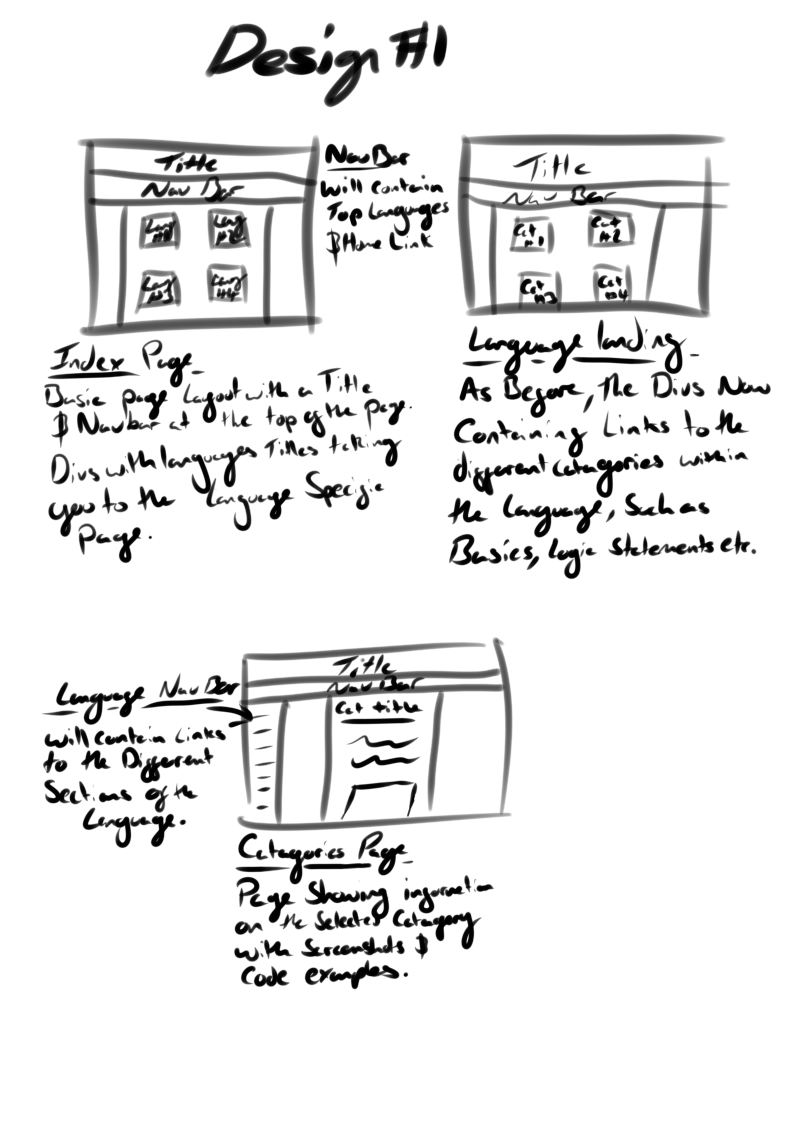 Design #1
Title
Nav Bar
Lang #1
Lang #2
Lang #3
Lang #4
Nav Bar
Will Contain
Top Languages
& Home Link
Title
Nav Bar
Cat #1
Cat #2
Cat #3
Cat #4
Index Page
Basic page Layout with a Title
& Navbar at the top of the page.
Divs with languages Titles taking
you to the Language Specific
Page.
Language landing
As Before, The Divs Now
Containing Links to the
different catagories within
the Language, Such as
Basics, Logic Statements etc.
Language Nav Bar
will contain Links
to the Different
Sections of the
Language.
Title
Nav Bar
Cat title
Catagories Page
Page Showing information
on the Selected Catagory
with Screenshots &
Code examples.